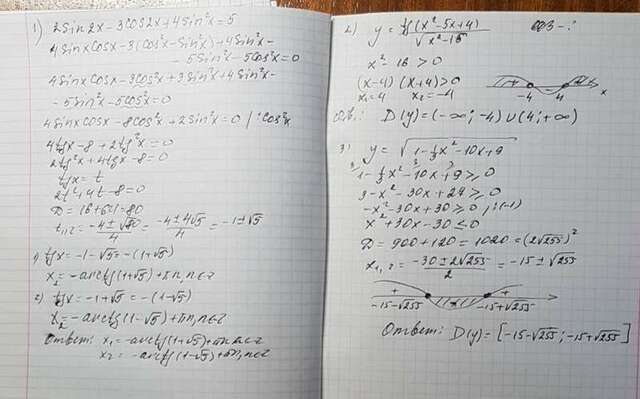 1) 2sin2x-3cos2x+4sin²x=5
4sinxcosx-3(cos²x-sin²x)+4sin²x-
-5sin²x-5cos²x=0
4sinxcosx-3cos²x+3sin²x+4sin²x-
-5sin²x-5cos²x=0
4sinxcosx-8cos²x+2sin²x=0 /:cos²x
4tgx-8+2tg²x=0
2tg²x+4tgx-8=0
tgx=t
2t²+4t-8=0
D=16+64=80
t₁,₂=(-4±√80)/4=(-4±4√5)/4=-1±√5
1) tgx=-1-√5=-(1+√5)
x₂=-arctg(1+√5)+πn,n∈z
2) tgx=-1+√5=-(1-√5)
x₂=-arctg(1-√5)+πn,n∈z
Ответ: x₁=-arctg(1+√5)+πn,n∈z
x₂=-arctg(1-√5)+πn,n∈z
2) y=(x²-5x+4)/√(x²-16)
x²-16>0
(x-4)(x+4)>0
x₁=4 x₂=-4
-4 4 x
D(y)=(-∞;-4)∪(4;+∞)
3) y=√(1-⅓x²-10x+9)
1-⅓x²-10x+9≥0
3-x²-30x+27≥0
-x²-30x+30≥0 /:(-1)
x²+30x-30≤0
D=900+120=1020=(2√255)²
x₁,₂=(-30±2√255)/2=-15±√255
+ - +
-15-√255 -15+√255
Ответ: D(y)=[-15-√255;-15+√255]